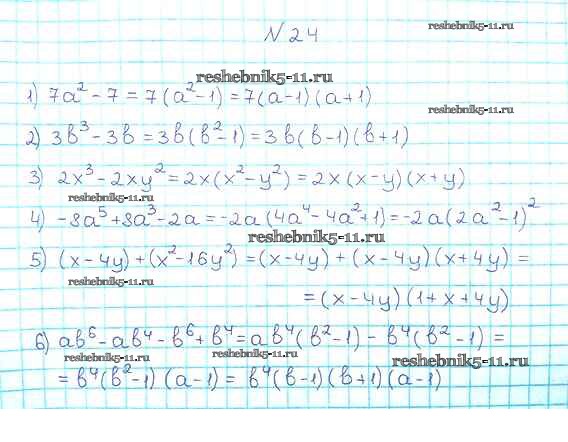 N 24
reshebnik5-11.ru
reshebnik5-11.ru
1) 7a² - 7 = 7(a² - 1) = 7(a - 1)(a + 1)
reshebnik5-11.ru
2) 3b³ - 3b = 3b(b² - 1) = 3b(b - 1)(b + 1)
3) 2x³ - 2xy² = 2x(x² - y²) = 2x(x - y)(x + y)
reshebnik5-11.ru
4) -8a⁵ + 8a³ - 2a = -2a(4a⁴ - 4a² + 1) = -2a(2a² - 1)²
reshebnik5-11.ru
5) (x - 4y) + (x² - 16y²) = (x - 4y) + (x - 4y)(x + 4y) =
reshebnik5-11.ru
= (x - 4y)(1 + x + 4y)
6) ab⁶ - ab⁴ - b⁶ + b⁴ = ab⁴(b² - 1) - b⁴(b² - 1) =
reshebnik5-11.ru
reshebnik5-11.ru
reshebnik5-11.ru
= b⁴(b² - 1)(a - 1) = b⁴(b - 1)(b + 1)(a - 1)